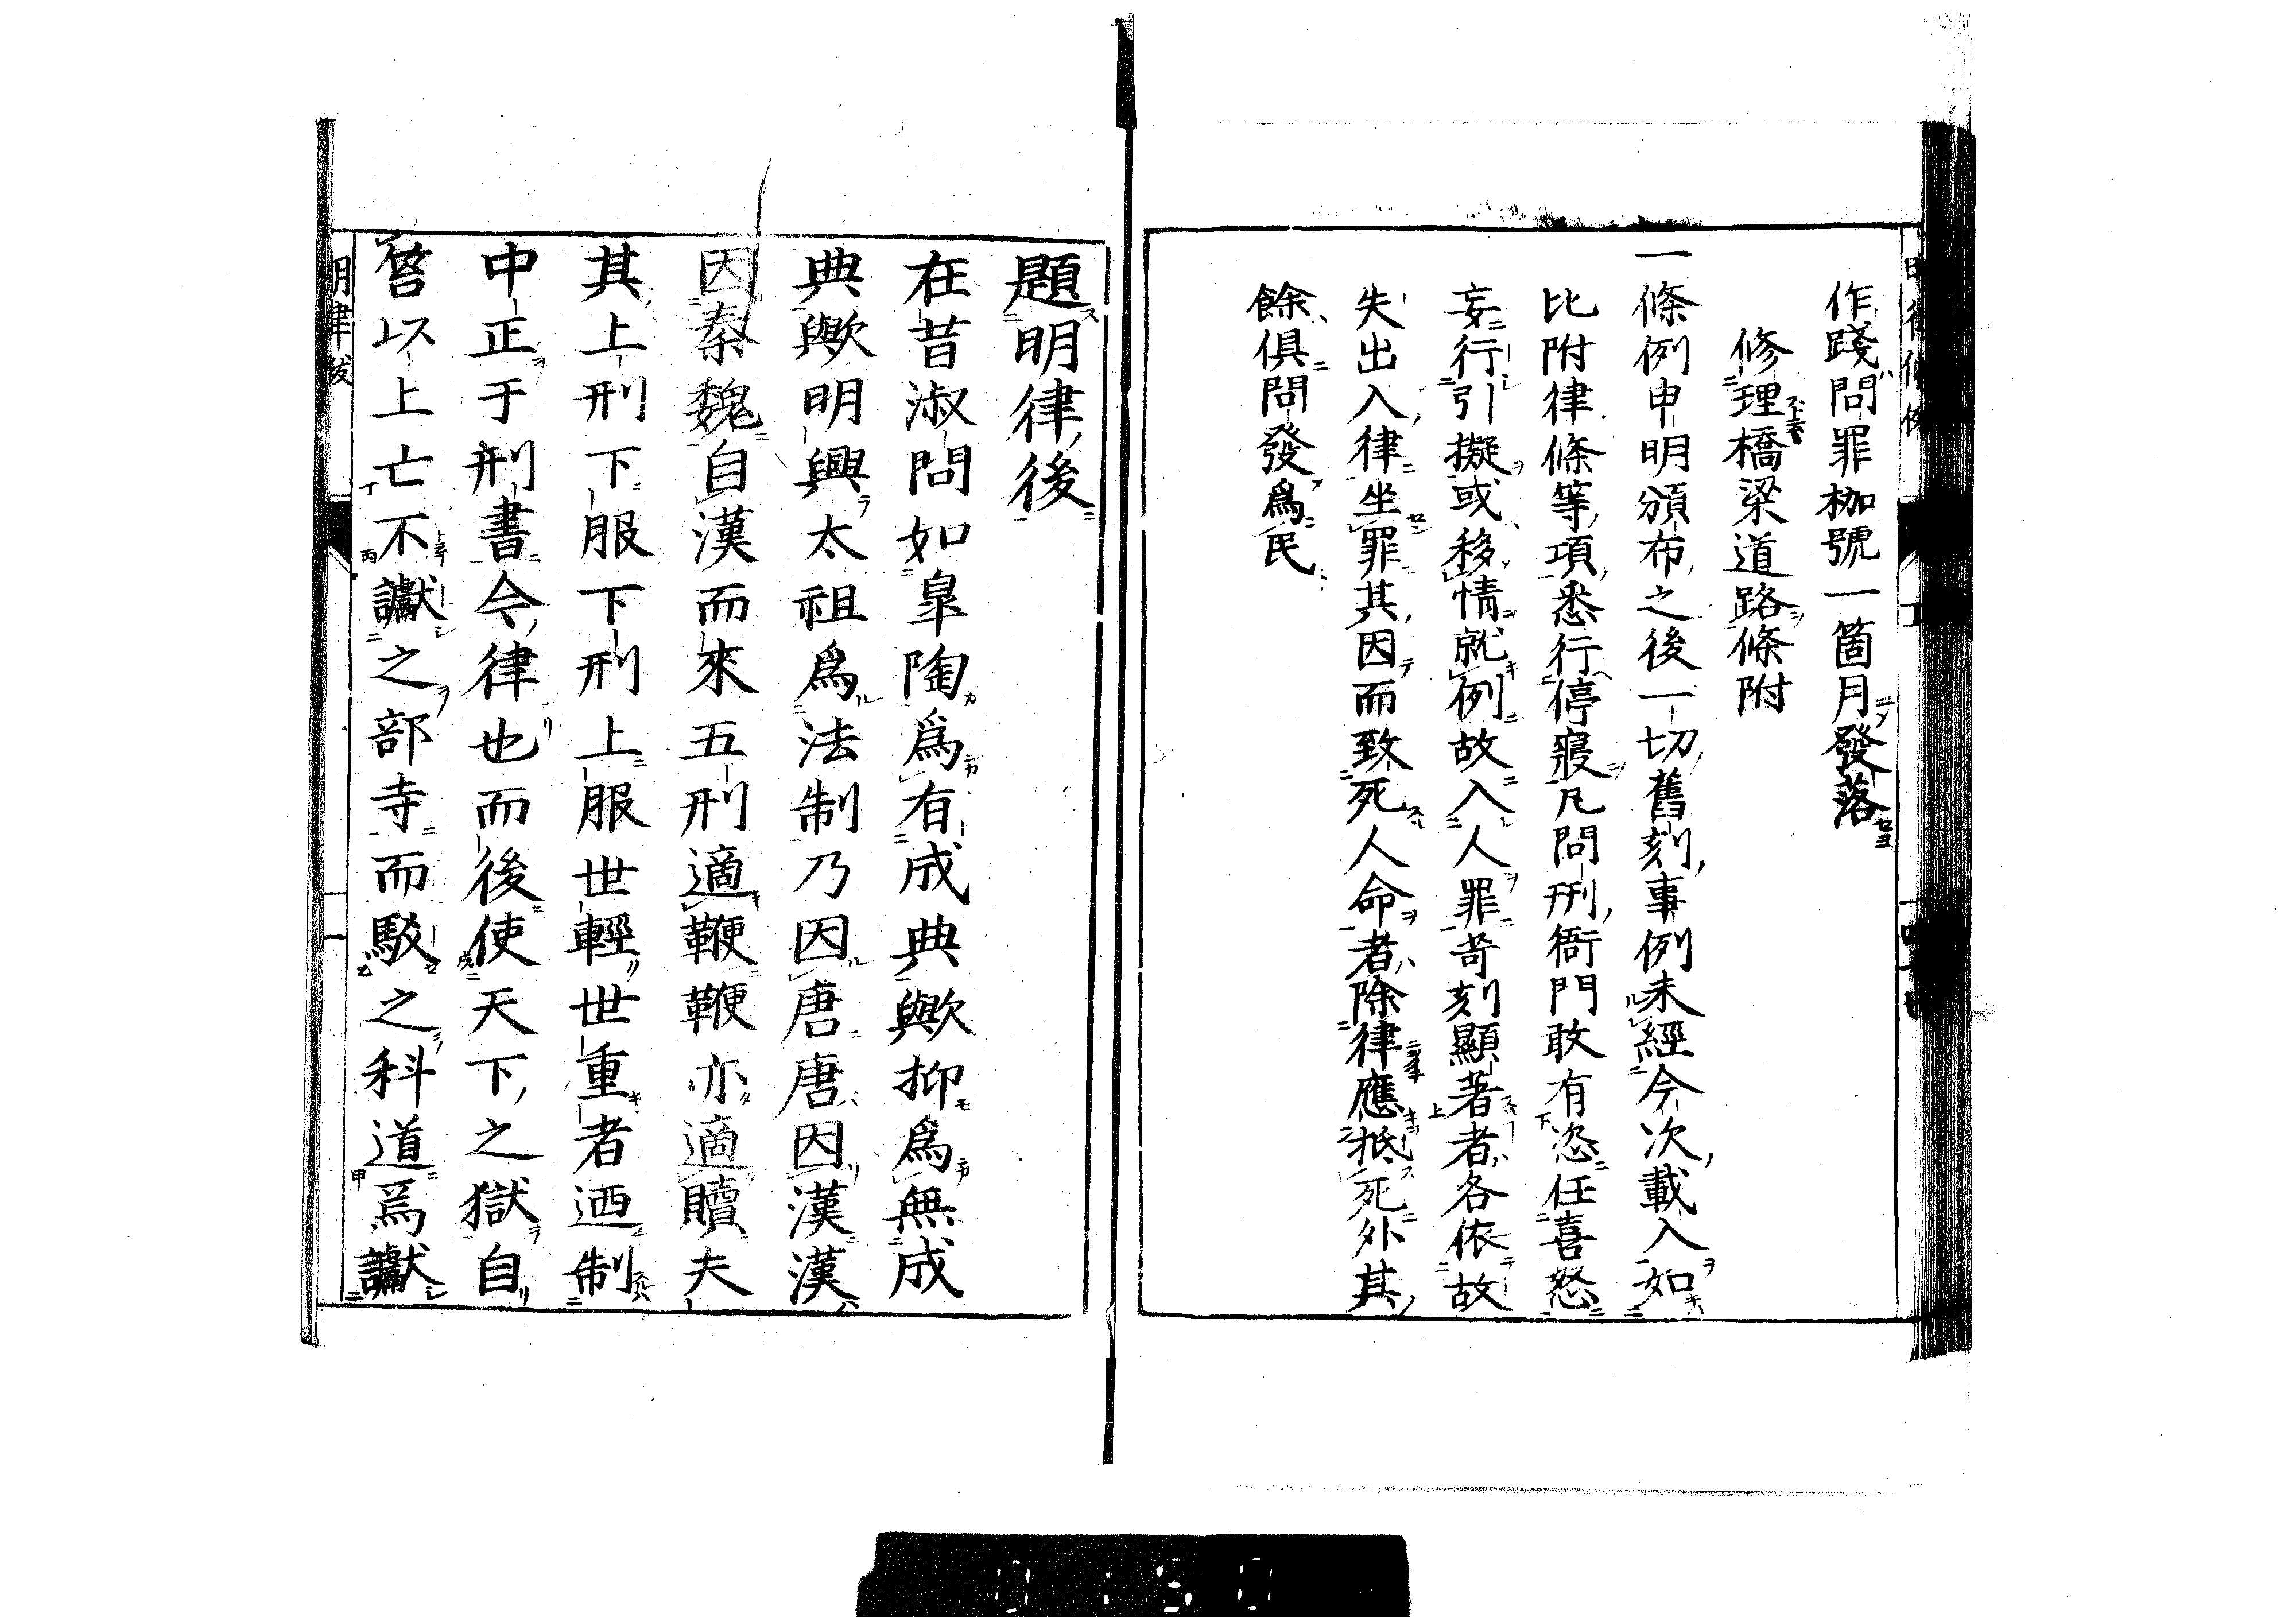 作踐問罪枷號一箇月發落
修理橋梁道路條附
一條例申明頒布之後一切舊刻事例未經今次載入如
比附律條等項悉行停寢凡問刑衙門敢有恣任喜怒
妄行引擬或移情就例故入人罪苛刻顯著者各依故
失出入律坐罪其因而致死人命者除律應抵死外其
餘俱問發爲民
題明律後
在昔淑問如皐陶爲有成典歟抑爲無成
典歟明興太祖爲法制乃因唐唐因漢漢
因秦魏自漢而來五刑適鞭鞭亦適贖夫
其上刑下服下刑上服世輕世重者迺制
中正于刑書今律也而後使天下之獄自
笞以上亡不讞之部寺而駁之科道焉讞
明律跋
一